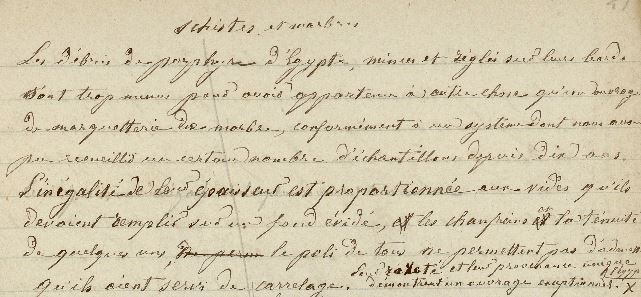 schistes, et marbres
Les débris de porphyre d'Égypte, minces et réglés sur leurs bords
sont trop menus pour avoir appartenu à autre chose qu'un ouvrage
de marquetterie de marbre, conformément à un système dont nous avons
pu recueilli un certain nombre d'échantillons depuis dix ans.
L'inégalité de leur épaisseur est proportionnée aux vides qu'ils
devaient remplir sur un fond évidé, les chanfreins et la ténuité
de quelques uns, le poli de tous ne permettent pas d'admettre
qu'ils aient servi de carrelage.
leur rareté et leur provenance unique
démontrent un ouvrage